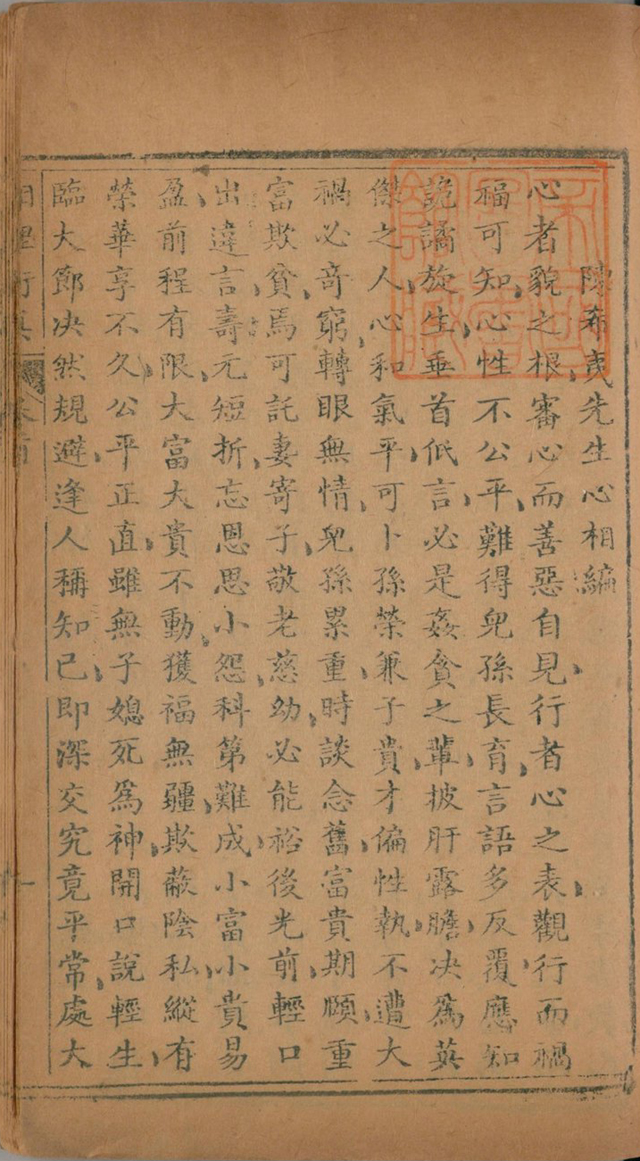 陳希夷先生心相編
心者貌之根審心而善惡自見行者心之表觀行而禍
福可知心性不公平難得兒孫長育言語多反覆應知
詭譎旋生垂首低言必是姦貪之輩披肝露膽决為英
傑之人心和氣平可卜孫榮兼子貴才偏性執不遭大
禍必竒窮轉眼無情兒孫累重時談念舊富貴期頤重
富欺貧焉可託妻寄子敬老慈幼必能裕後光前輕口
出違言壽元短折忘恩思小怨科第難成小富小貴易
盈前程有限大富大貴不動獲福無疆欺蔽陰私縱有
榮華享不久公平正直雖無子媳死為神開口說輕生
臨大節决然規避逢人稱知己即深交究竟平常處大
相理衡真 卷首 一